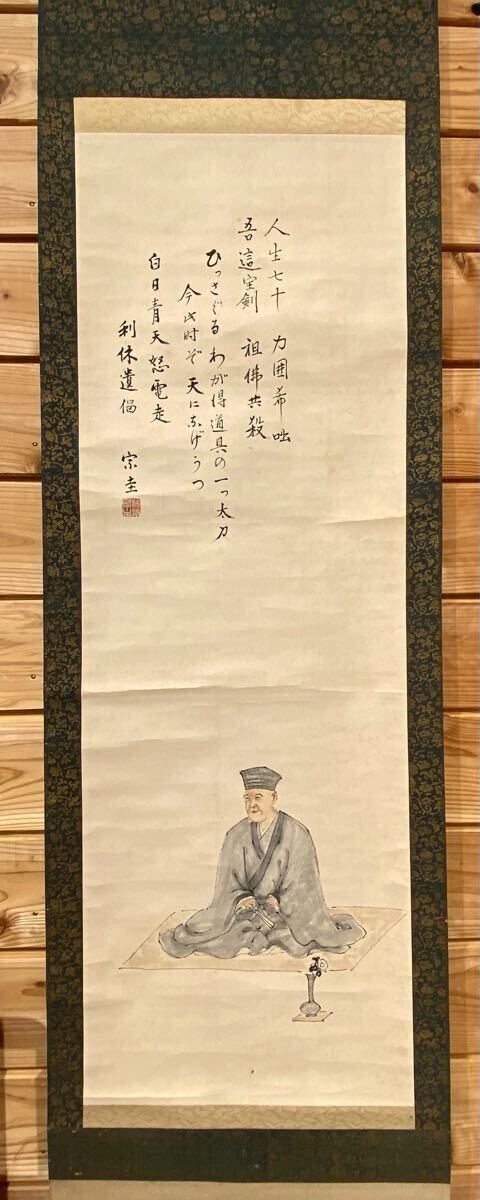 人生七十 力囲希咄
吾這宝剣 祖佛共殺
ひっさぐる わが得道具の 一つ太刀
今此時ぞ 天になげうつ
白日青天怒電走
利休遺偈 宗圭